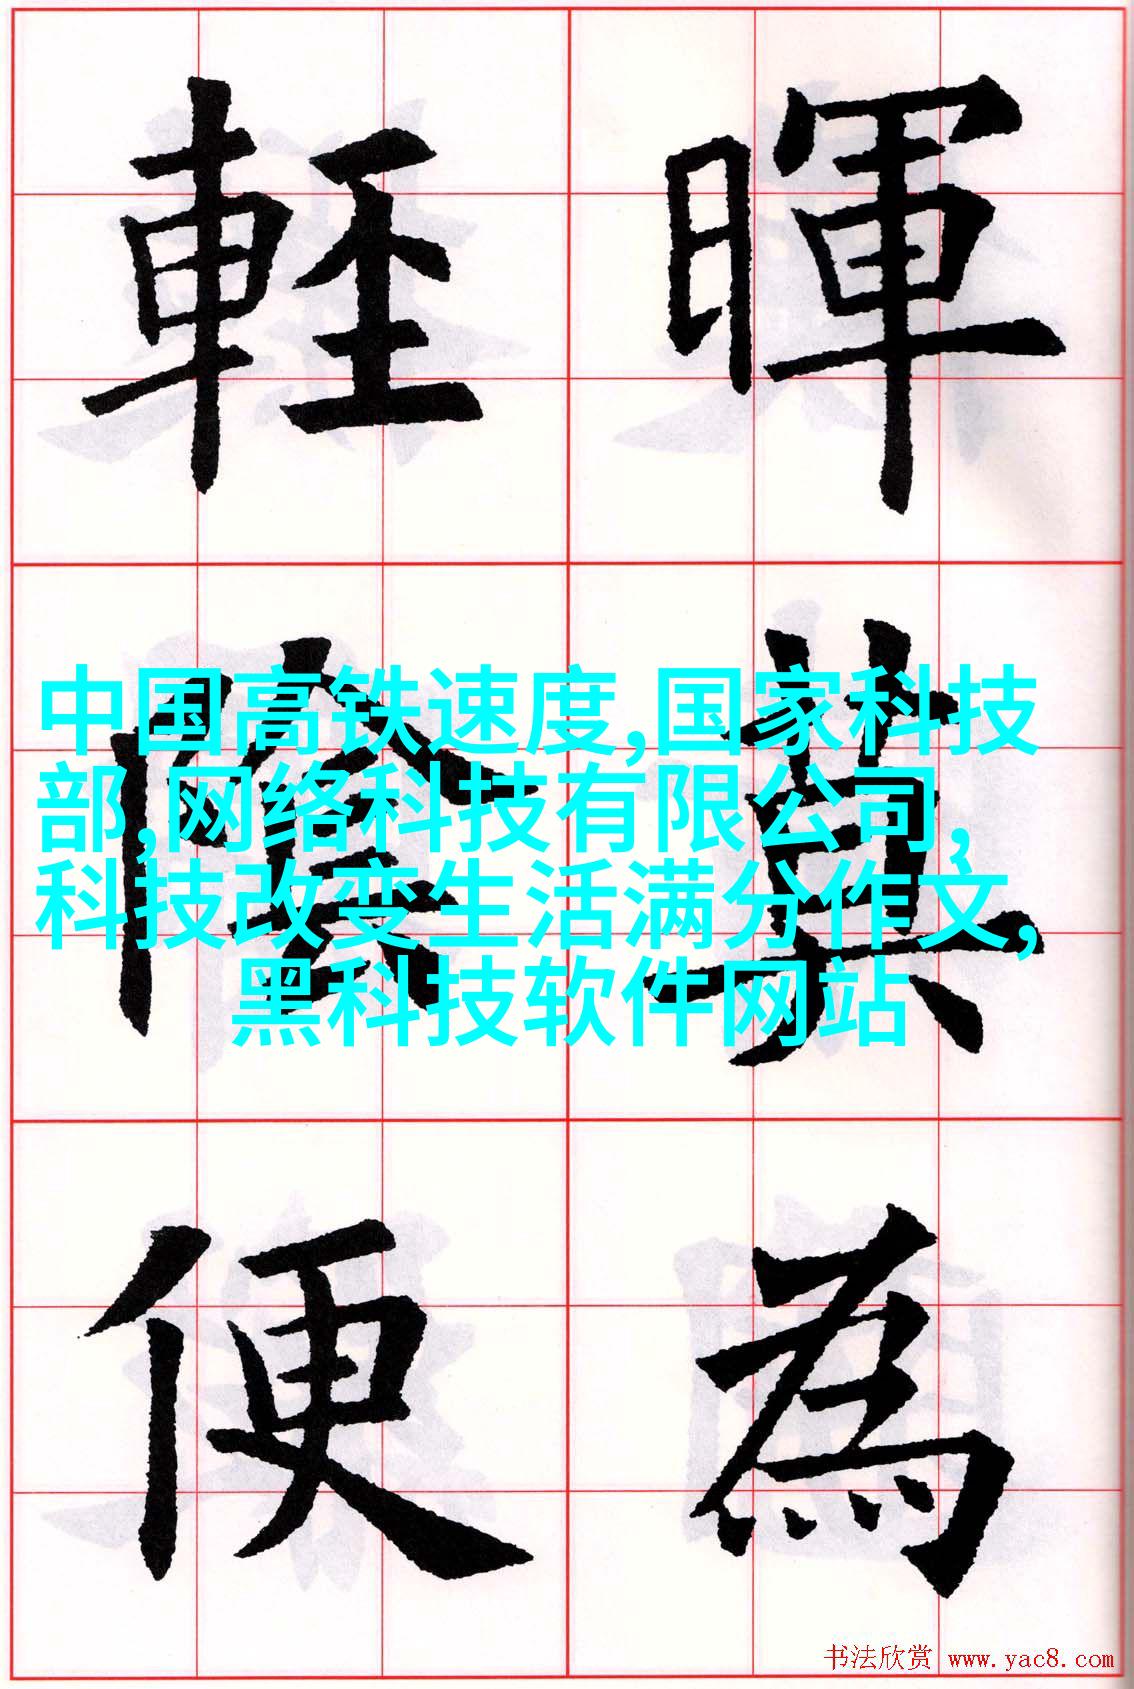 暉莫為
輕陰便
中国高铁速度,国家科技
部,网络科技有限公司,
科技改变生活满分作文,
黑科技软件网站
书法欣赏 www.yac8.com